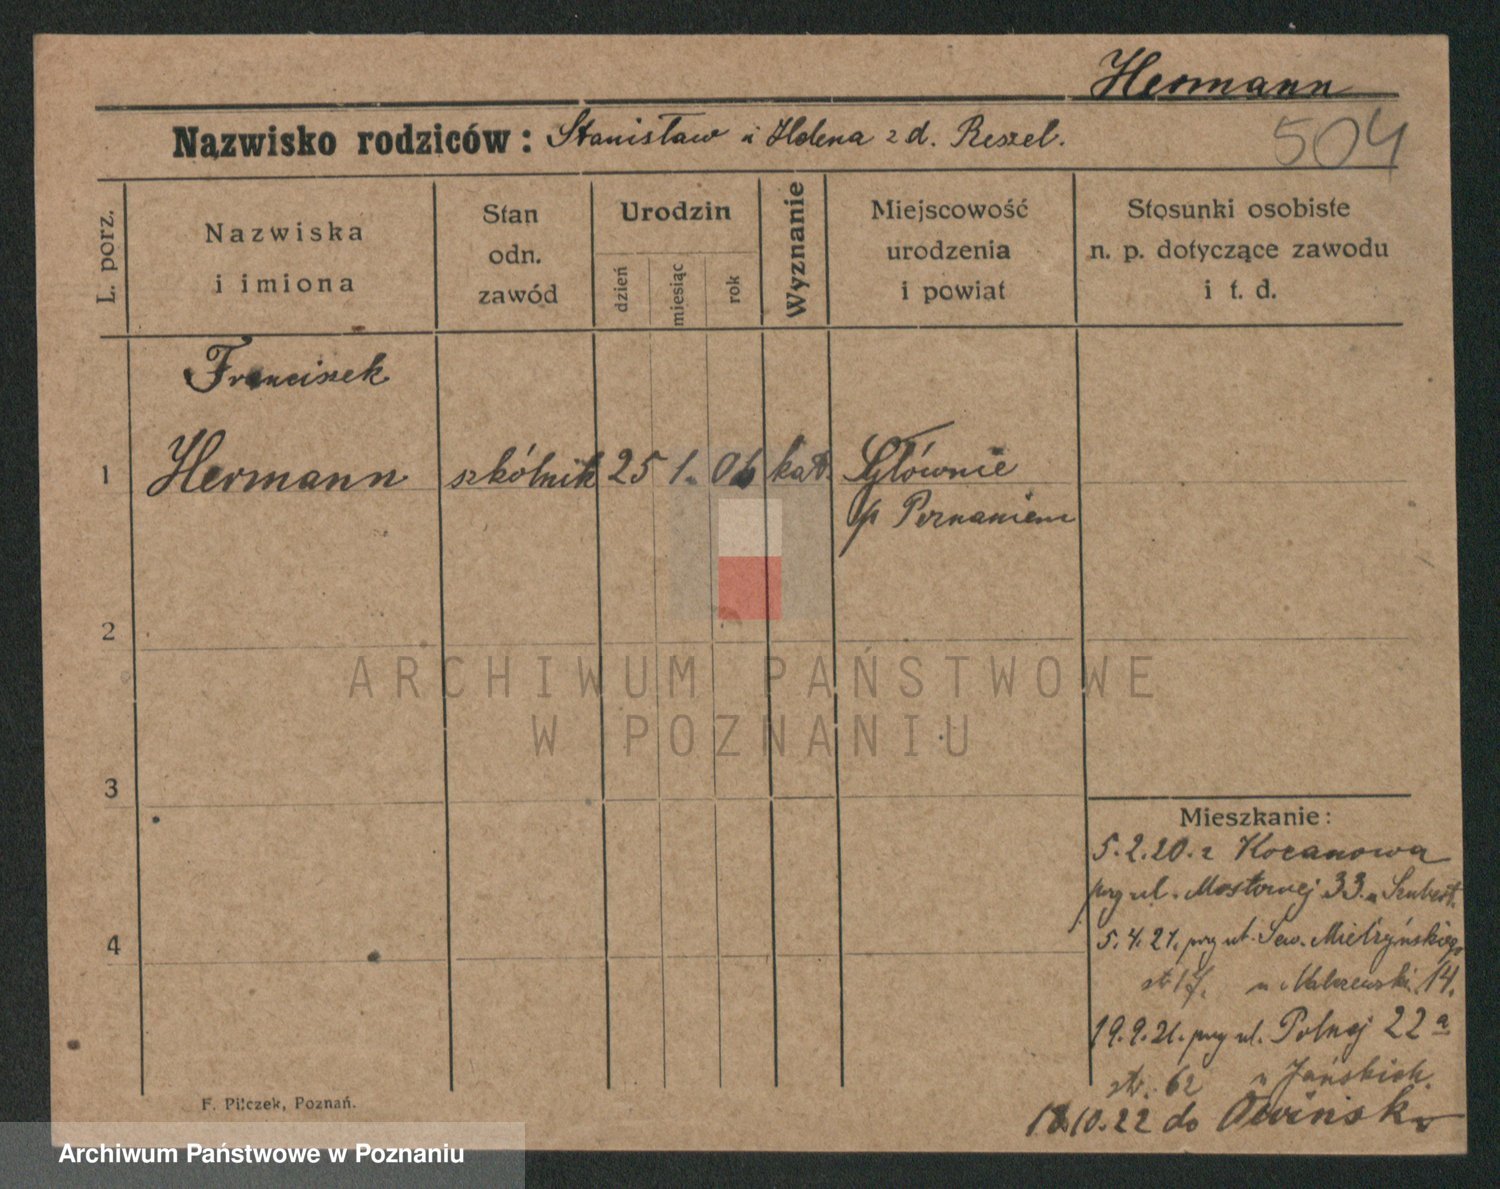 Hermann
Nazwisko rodziców: Stanisław i Helena z d. Reszel.
504
L. porz.
Nazwiska
i imiona
Stan
odn.
zawód
Urodzin
dzień
miesiąc
rok
Wyznanie
Miejscowość
urodzenia
i powiat
Stosunki osobiste
n. p. dotyczące zawodu
i t. d.
Franciszek
1 Hermann szkólnik 25 1. 06 kat. Głównie
p Poznaniem
2
3
4
Mieszkanie:
5.2.20. z Kocanowa
przy ul. Mostowej 33. u Szubert.
5.4.21. przy ul. Sew. Mielżyńskiego
str 17. u 14.
19.9.21. przy ul. Polnej 22a
str. 62 u Jańskich.
18.10.22 do Owińsk
F. Pilczek, Poznań.
ARCHIWUM PAŃSTWOWE
W POZNANIU
Archiwum Państwowe w Poznaniu